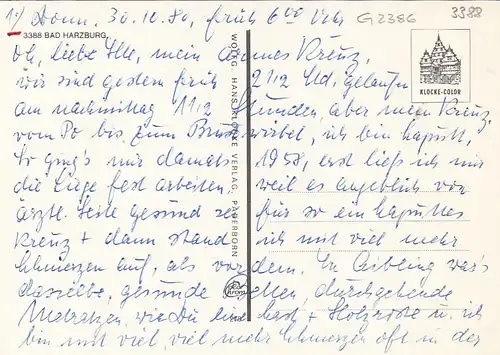 1.) Donn. 30.10.80, früh 6 00 Uhr G2386 3388
3388 BAD HARZBURG,
Oh, liebe Ille, mein armes Kreuz,
wir sind gestern früh 2 1/2 Std. gelaufen
am nachmittag 1 1/2 Stunden, aber mein Kreuz,
vom Po bis zum Brustwirbel, ich bin kaputt,
So ging's mir damals 1958, erst ließ ich mir
die Liege fest arbeiten, weil es angeblich von
ärztl. Seite gesund für so ein kaputtes
Kreuz + dann stand ich mit viel mehr
Schmerzen auf, als vordem. In Aibling war's
dasselbe, gesunde Betten, durchgehende
Matratzen, wie Du hast + Holzroste u. ich
bin mit viel, viel mehr Schmerzen oft in der
KLOCKE-COLOR
WOLFG. HANS KLOCKE VERLAG, PADERBORN